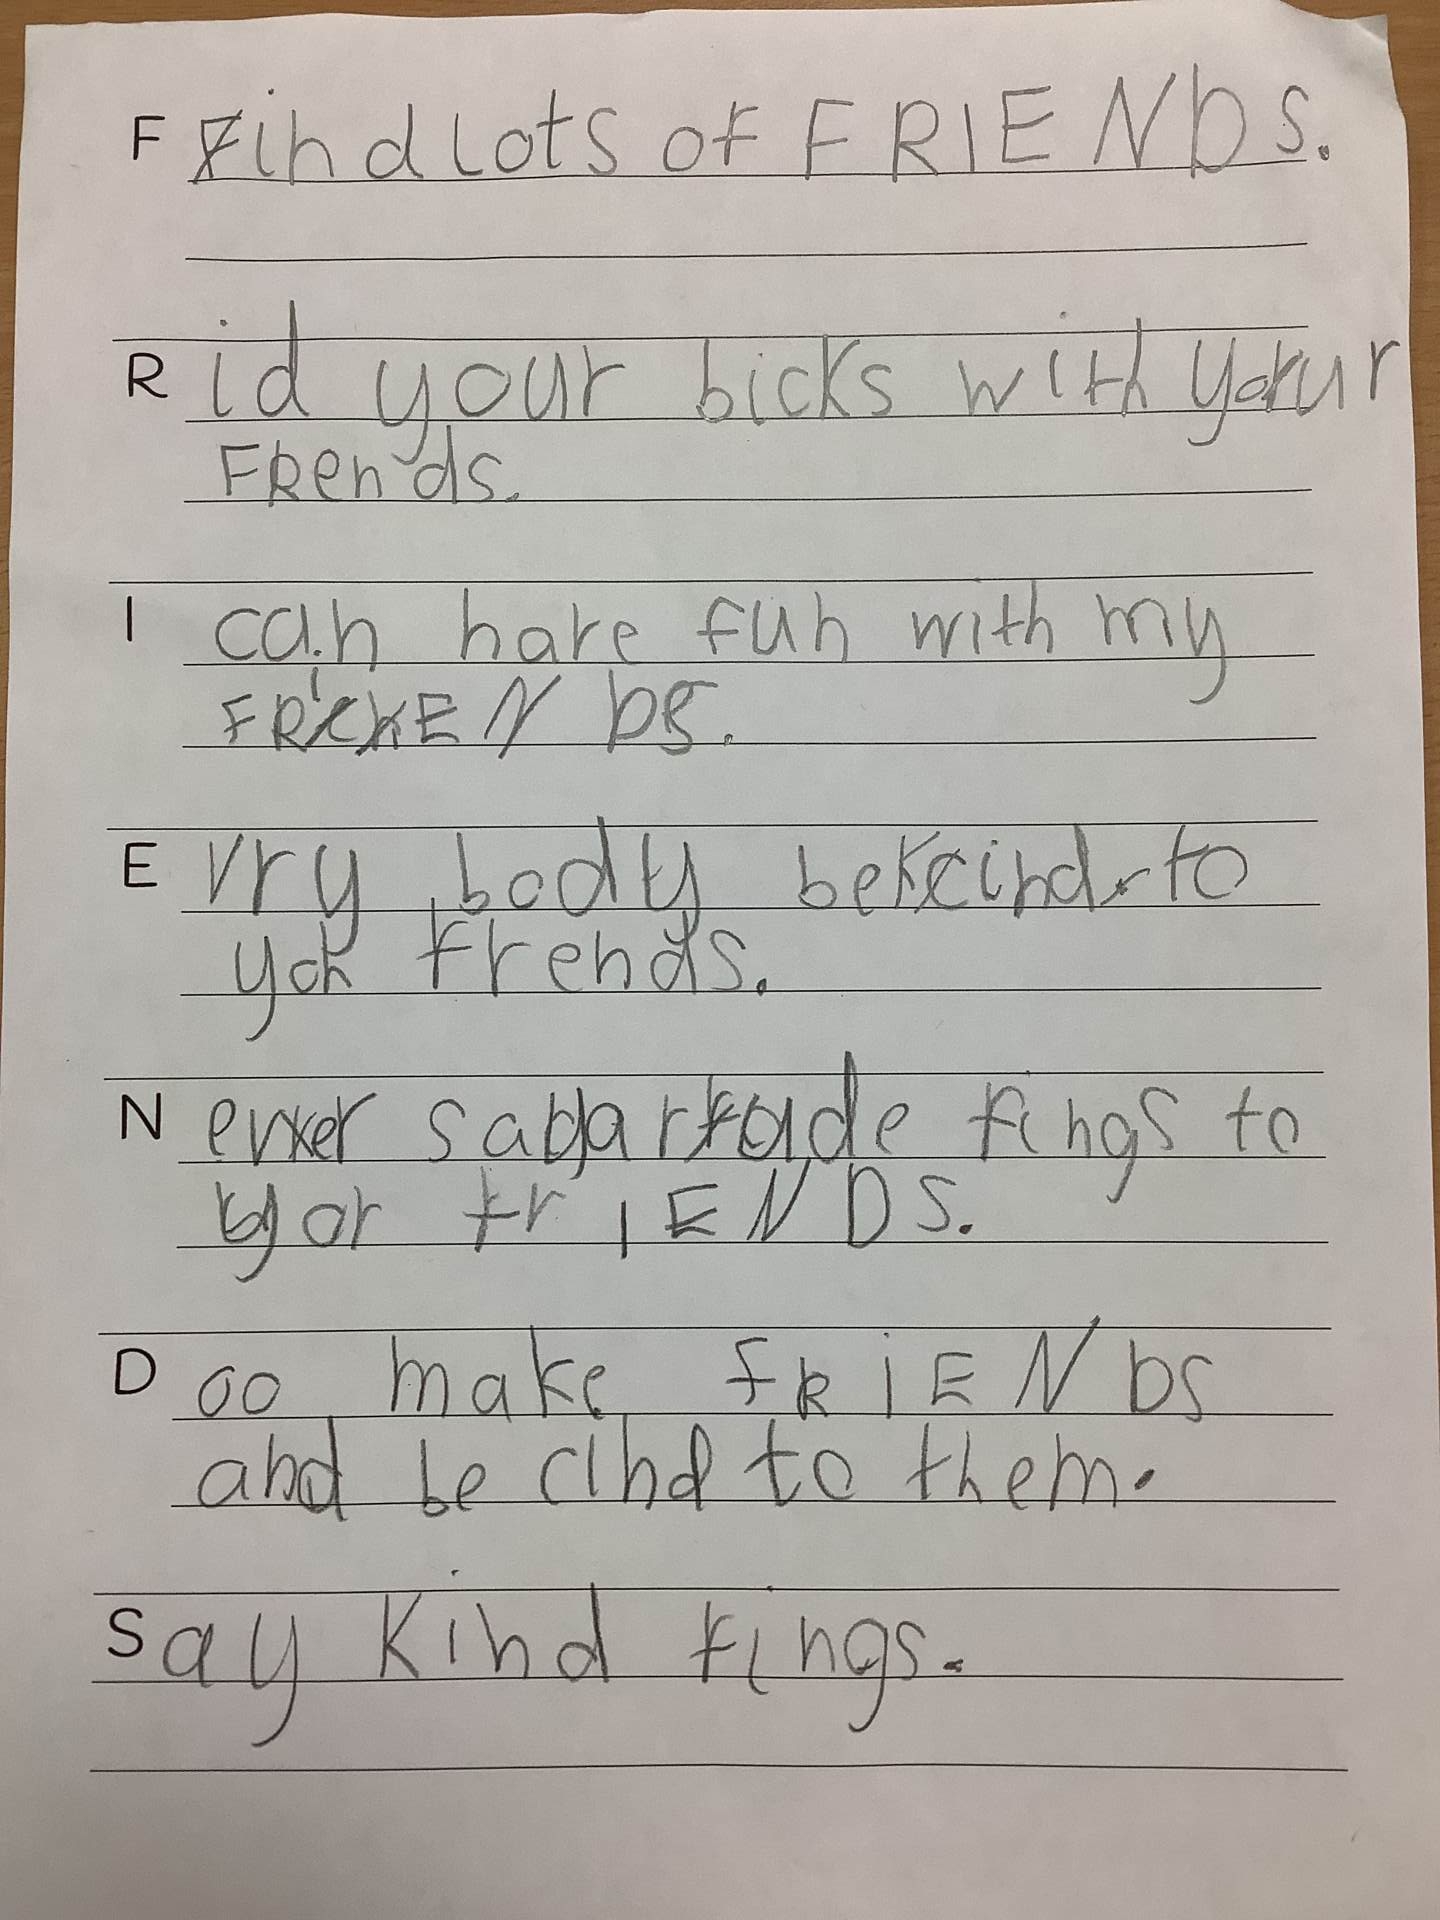 F Find lots of FRIENDS.
R id your bicks with your
FRends.
I can hare fun with my
FRiENDS.
E vry body bekind to
yor frends.
N ever fings to
yor frIENDS.
D oo make fRiENDS
and be cind to them.
S ay kind fings.